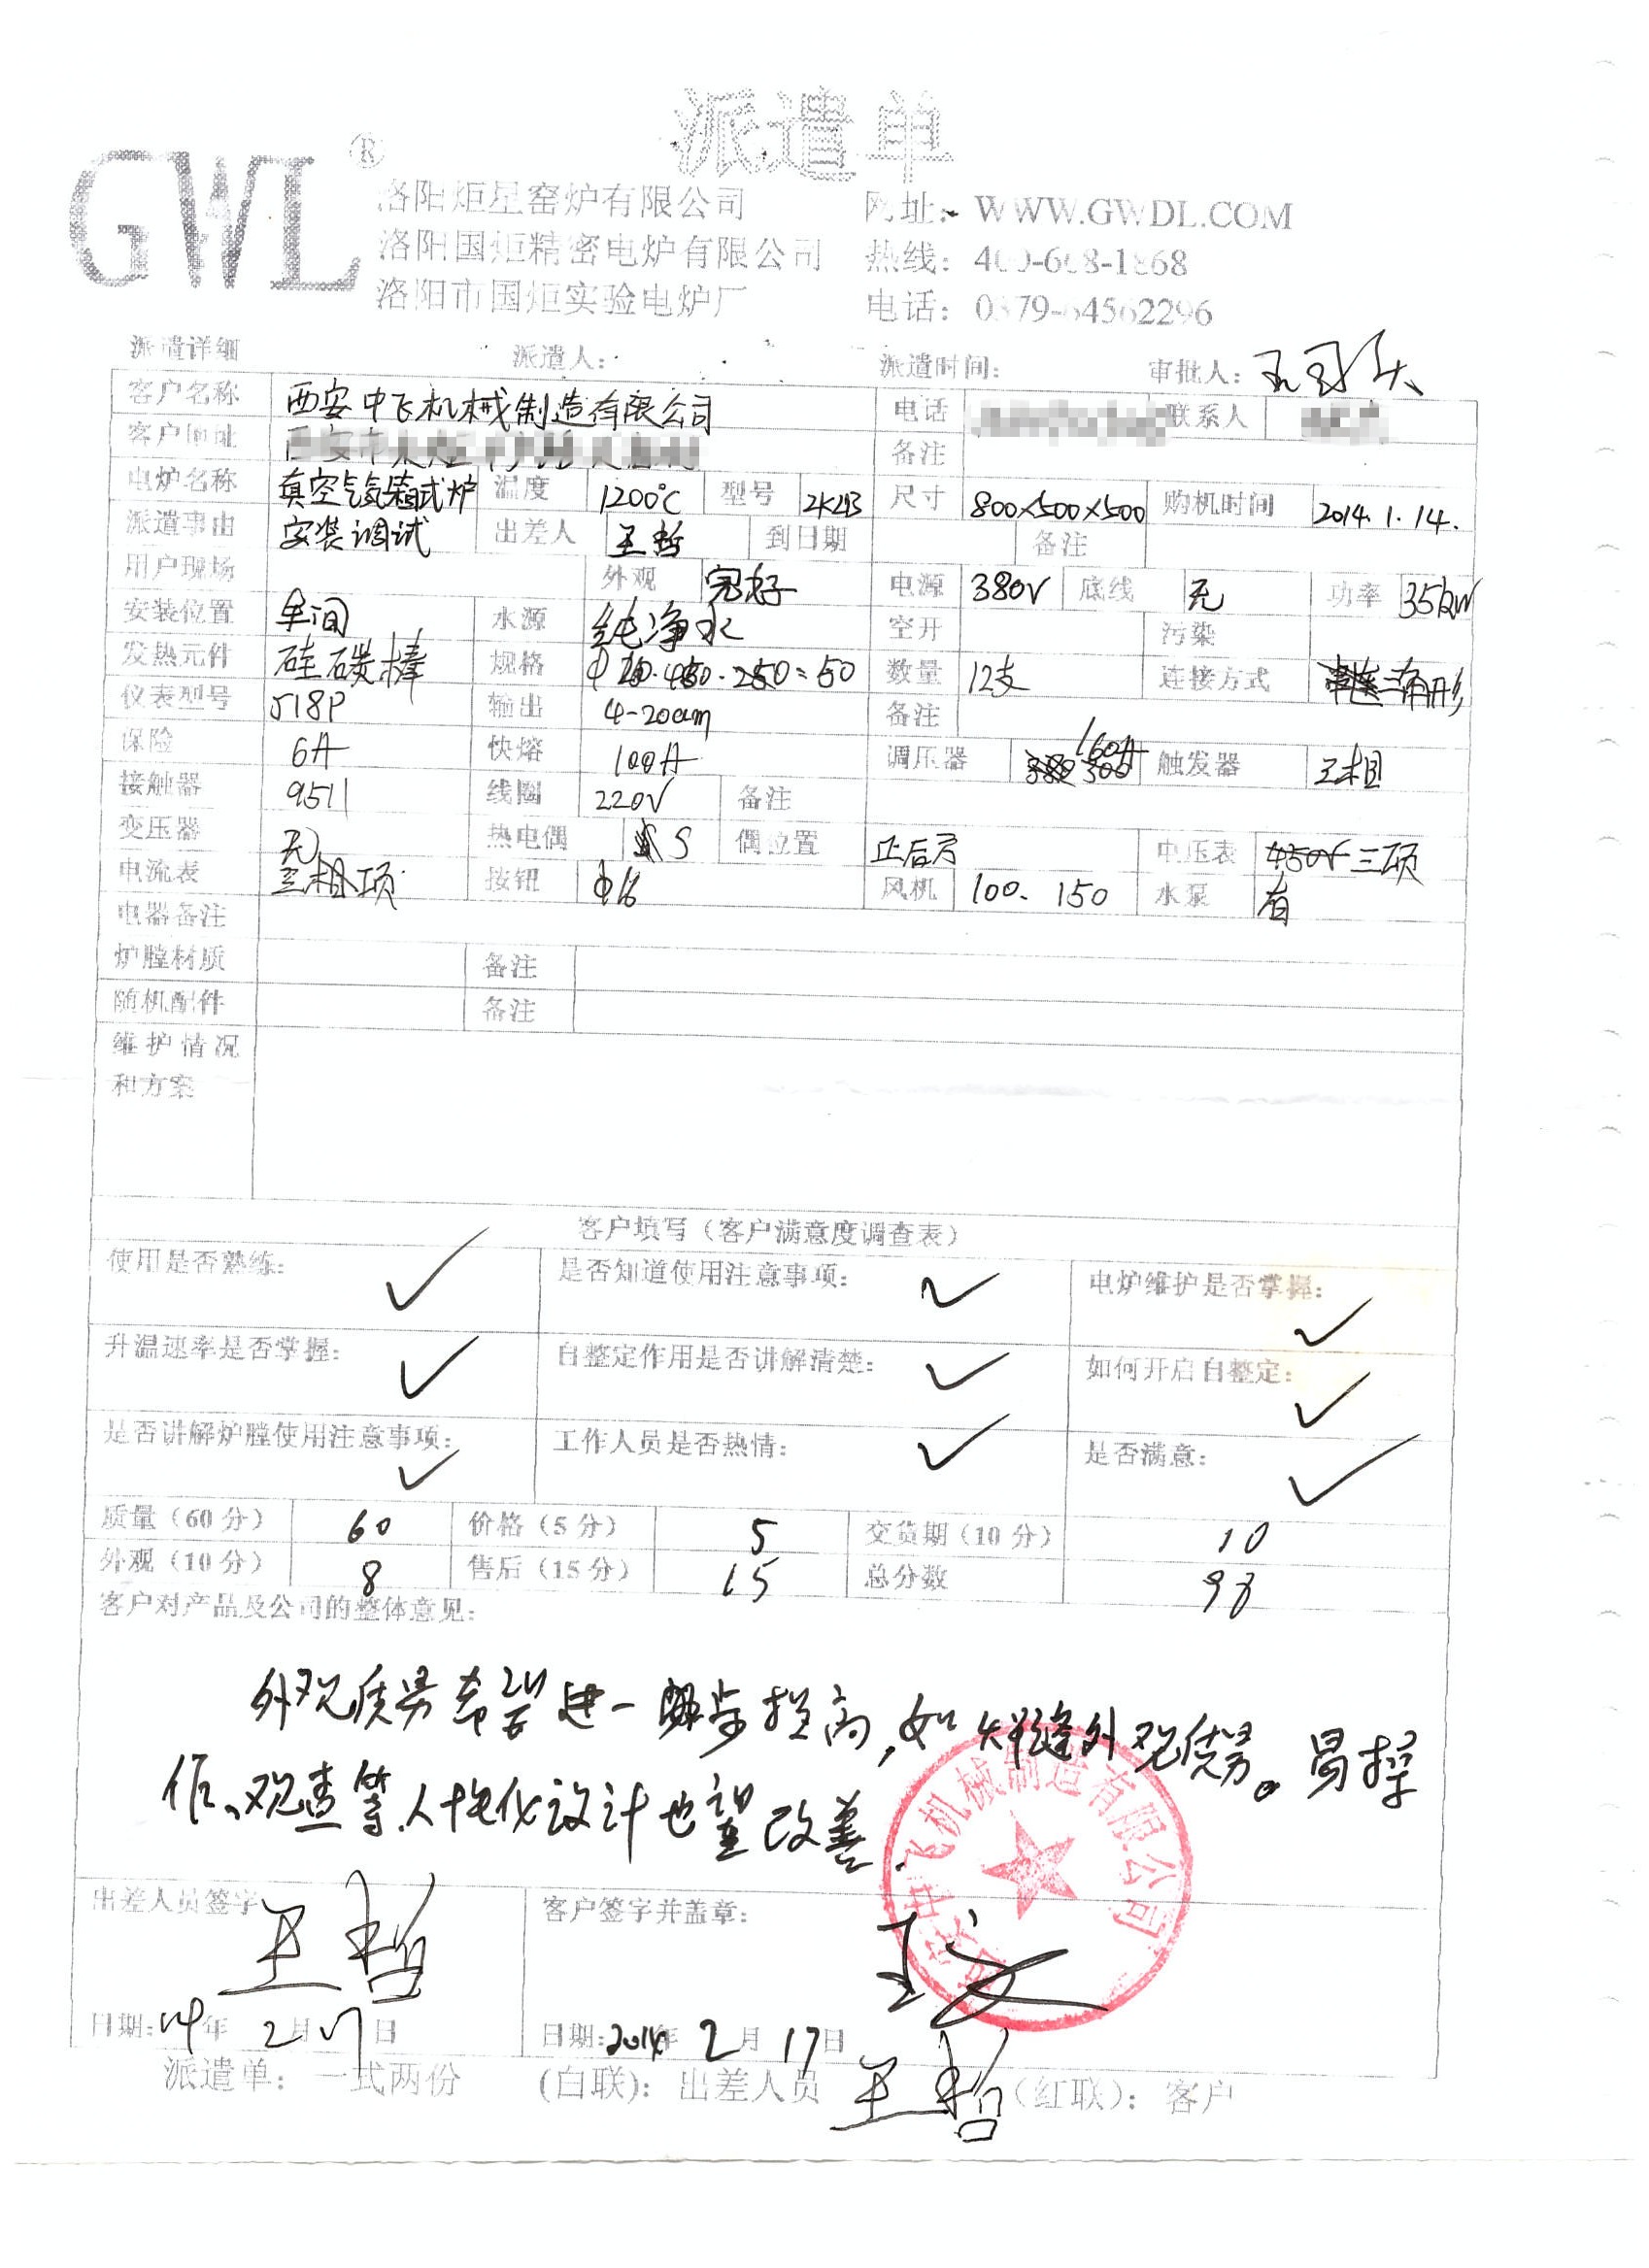 派遣单
GWL®
洛阳炬星窑炉有限公司 网址: WWW.GWDL.COM
洛阳国炬精密电炉有限公司 热线: 400-608-1868
洛阳市国炬实验电炉厂 电话: 0379-64562296
派遣详细 派遣人: 派遣时间: 审批人:
客户名称 西安中飞机械制造有限公司 电话 联系人
客户地址 备注
电炉名称 真空气氛箱式炉 温度 1200℃ 型号 尺寸 800×500×500 购机时间 2014.1.14.
派遣事由 安装调试 出差人 王哲 到日期 备注
用户现场 外观 完好 电源 380V 底线 无 功率 35kW
安装位置 车间 水源 纯净水 空开 污染
发热元件 硅碳棒 规格 数量 12支 连接方式 三角形
仪表型号 518P 输出 4-20am 备注
保险 6A 快熔 100A 调压器 160A 触发器 三相
接触器 9511 线圈 220V 备注
变压器 无 热电偶 S 偶位置 正后方 电压表 450V 三项
电流表 按钮 Φ16 风机 100. 150 水泵 有
电器备注
炉膛材质 备注
随机配件 备注
维护情况
和方案
客户填写(客户满意度调查表)
使用是否熟练: ✓ 是否知道使用注意事项: ✓ 电炉维护是否掌握: ✓
升温速率是否掌握: ✓ 自整定作用是否讲解清楚: ✓ 如何开启自整定: ✓
是否讲解炉膛使用注意事项: ✓ 工作人员是否热情: ✓ 是否满意: ✓
质量(60分) 60 价格(5分) 5 交货期(10分) 10
外观(10分) 8 售后(15分) 15 总分数 98
客户对产品及公司的整体意见:
外观质量希望进一步提高,如焊缝外观质量。易操
作、观查等人性化设计也望改善.
西安中飞机械制造有限公司
出差人员签字 王哲 客户签字并盖章: 王文
日期: 14年 2月17日 日期: 2014年 2月 17日
派遣单: 一式两份 (白联): 出差人员 王哲 (红联): 客户